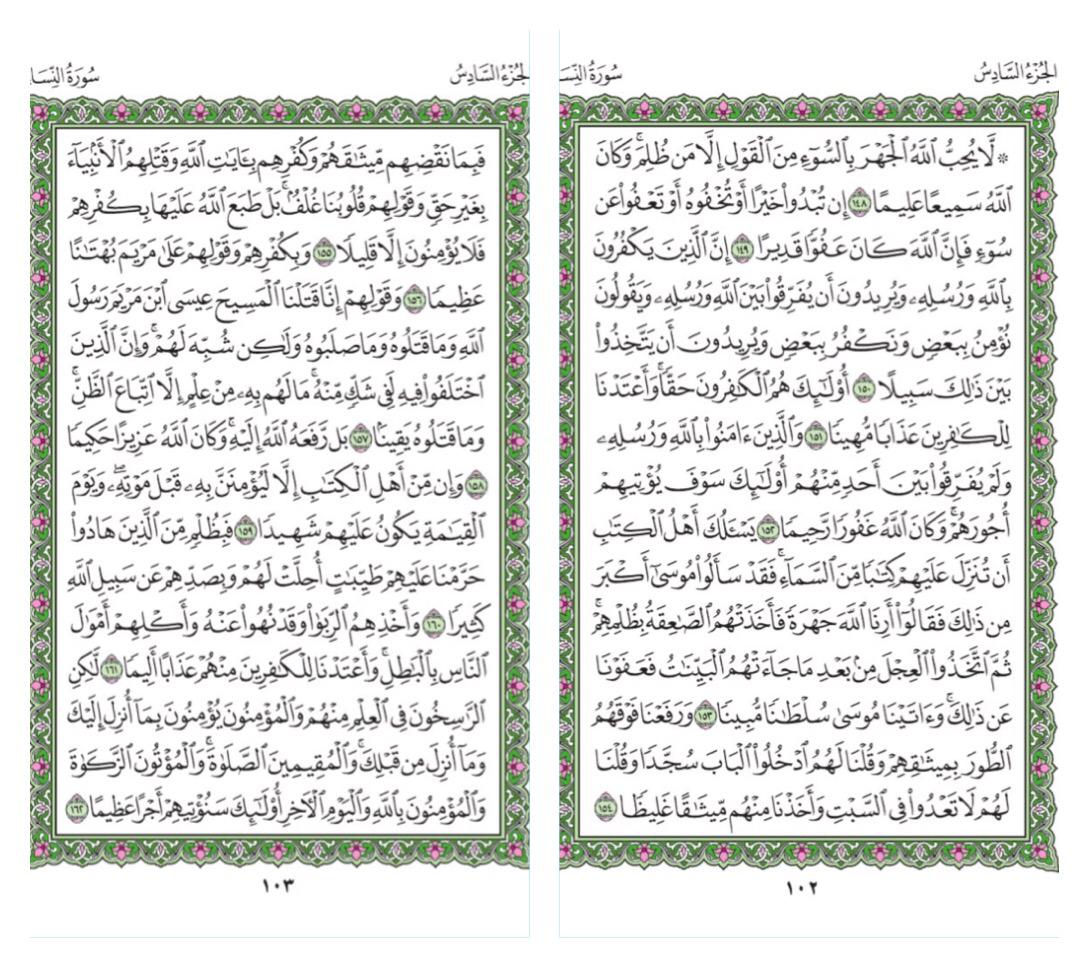 الجزء السادس
سورة النسا
۞ لَّا يُحِبُّ ٱللَّهُ ٱلْجَهْرَ بِٱلسُّوٓءِ مِنَ ٱلْقَوْلِ إِلَّا مَن ظُلِمَ ۚ وَكَانَ
ٱللَّهُ سَمِيعًا عَلِيمًا ١٤٨ إِن تُبْدُوا۟ خَيْرًا أَوْ تُخْفُوهُ أَوْ تَعْفُوا۟ عَن
سُوٓءٍ فَإِنَّ ٱللَّهَ كَانَ عَفُوًّا قَدِيرًا ١٤٩ إِنَّ ٱلَّذِينَ يَكْفُرُونَ
بِٱللَّهِ وَرُسُلِهِۦ وَيُرِيدُونَ أَن يُفَرِّقُوا۟ بَيْنَ ٱللَّهِ وَرُسُلِهِۦ وَيَقُولُونَ
نُؤْمِنُ بِبَعْضٍ وَنَكْفُرُ بِبَعْضٍ وَيُرِيدُونَ أَن يَتَّخِذُوا۟
بَيْنَ ذَٰلِكَ سَبِيلًا ١٥٠ أُو۟لَـٰٓئِكَ هُمُ ٱلْكَـٰفِرُونَ حَقًّا ۚ وَأَعْتَدْنَا
لِلْكَـٰفِرِينَ عَذَابًا مُّهِينًا ١٥١ وَٱلَّذِينَ ءَامَنُوا۟ بِٱللَّهِ وَرُسُلِهِۦ
وَلَمْ يُفَرِّقُوا۟ بَيْنَ أَحَدٍ مِّنْهُمْ أُو۟لَـٰٓئِكَ سَوْفَ يُؤْتِيهِمْ
أُجُورَهُمْ ۗ وَكَانَ ٱللَّهُ غَفُورًا رَّحِيمًا ١٥٢ يَسْـَٔلُكَ أَهْلُ ٱلْكِتَـٰبِ
أَن تُنَزِّلَ عَلَيْهِمْ كِتَـٰبًا مِّنَ ٱلسَّمَآءِ ۚ فَقَدْ سَأَلُوا۟ مُوسَىٰٓ أَكْبَرَ
مِن ذَٰلِكَ فَقَالُوٓا۟ أَرِنَا ٱللَّهَ جَهْرَةً فَأَخَذَتْهُمُ ٱلصَّـٰعِقَةُ بِظُلْمِهِمْ ۚ
ثُمَّ ٱتَّخَذُوا۟ ٱلْعِجْلَ مِنۢ بَعْدِ مَا جَآءَتْهُمُ ٱلْبَيِّنَـٰتُ فَعَفَوْنَا
عَن ذَٰلِكَ ۚ وَءَاتَيْنَا مُوسَىٰ سُلْطَـٰنًا مُّبِينًا ١٥٣ وَرَفَعْنَا فَوْقَهُمُ
ٱلطُّورَ بِمِيثَـٰقِهِمْ وَقُلْنَا لَهُمُ ٱدْخُلُوا۟ ٱلْبَابَ سُجَّدًا وَقُلْنَا
لَهُمْ لَا تَعْدُوا۟ فِى ٱلسَّبْتِ وَأَخَذْنَا مِنْهُم مِّيثَـٰقًا غَلِيظًا ١٥٤
١٠٢
لجزء السادس
سورة النسا
فَبِمَا نَقْضِهِم مِّيثَـٰقَهُمْ وَكُفْرِهِم بِـَٔايَـٰتِ ٱللَّهِ وَقَتْلِهِمُ ٱلْأَنۢبِيَآءَ
بِغَيْرِ حَقٍّ وَقَوْلِهِمْ قُلُوبُنَا غُلْفٌۢ ۚ بَلْ طَبَعَ ٱللَّهُ عَلَيْهَا بِكُفْرِهِمْ
فَلَا يُؤْمِنُونَ إِلَّا قَلِيلًا ١٥٥ وَبِكُفْرِهِمْ وَقَوْلِهِمْ عَلَىٰ مَرْيَمَ بُهْتَـٰنًا
عَظِيمًا ١٥٦ وَقَوْلِهِمْ إِنَّا قَتَلْنَا ٱلْمَسِيحَ عِيسَى ٱبْنَ مَرْيَمَ رَسُولَ
ٱللَّهِ وَمَا قَتَلُوهُ وَمَا صَلَبُوهُ وَلَـٰكِن شُبِّهَ لَهُمْ ۚ وَإِنَّ ٱلَّذِينَ
ٱخْتَلَفُوا۟ فِيهِ لَفِى شَكٍّ مِّنْهُ ۚ مَا لَهُم بِهِۦ مِنْ عِلْمٍ إِلَّا ٱتِّبَاعَ ٱلظَّنِّ ۚ
وَمَا قَتَلُوهُ يَقِينًۢا ١٥٧ بَل رَّفَعَهُ ٱللَّهُ إِلَيْهِ ۚ وَكَانَ ٱللَّهُ عَزِيزًا حَكِيمًا
١٥٨ وَإِن مِّنْ أَهْلِ ٱلْكِتَـٰبِ إِلَّا لَيُؤْمِنَنَّ بِهِۦ قَبْلَ مَوْتِهِۦ ۖ وَيَوْمَ
ٱلْقِيَـٰمَةِ يَكُونُ عَلَيْهِمْ شَهِيدًا ١٥٩ فَبِظُلْمٍ مِّنَ ٱلَّذِينَ هَادُوا۟
حَرَّمْنَا عَلَيْهِمْ طَيِّبَـٰتٍ أُحِلَّتْ لَهُمْ وَبِصَدِّهِمْ عَن سَبِيلِ ٱللَّهِ
كَثِيرًا ١٦٠ وَأَخْذِهِمُ ٱلرِّبَوٰا۟ وَقَدْ نُهُوا۟ عَنْهُ وَأَكْلِهِمْ أَمْوَٰلَ
ٱلنَّاسِ بِٱلْبَـٰطِلِ ۚ وَأَعْتَدْنَا لِلْكَـٰفِرِينَ مِنْهُمْ عَذَابًا أَلِيمًا ١٦١ لَّـٰكِنِ
ٱلرَّٰسِخُونَ فِى ٱلْعِلْمِ مِنْهُمْ وَٱلْمُؤْمِنُونَ يُؤْمِنُونَ بِمَآ أُنزِلَ إِلَيْكَ
وَمَآ أُنزِلَ مِن قَبْلِكَ ۚ وَٱلْمُقِيمِينَ ٱلصَّلَوٰةَ ۚ وَٱلْمُؤْتُونَ ٱلزَّكَوٰةَ
وَٱلْمُؤْمِنُونَ بِٱللَّهِ وَٱلْيَوْمِ ٱلْـَٔاخِرِ أُو۟لَـٰٓئِكَ سَنُؤْتِيهِمْ أَجْرًا عَظِيمًا ١٦٢
١٠٣